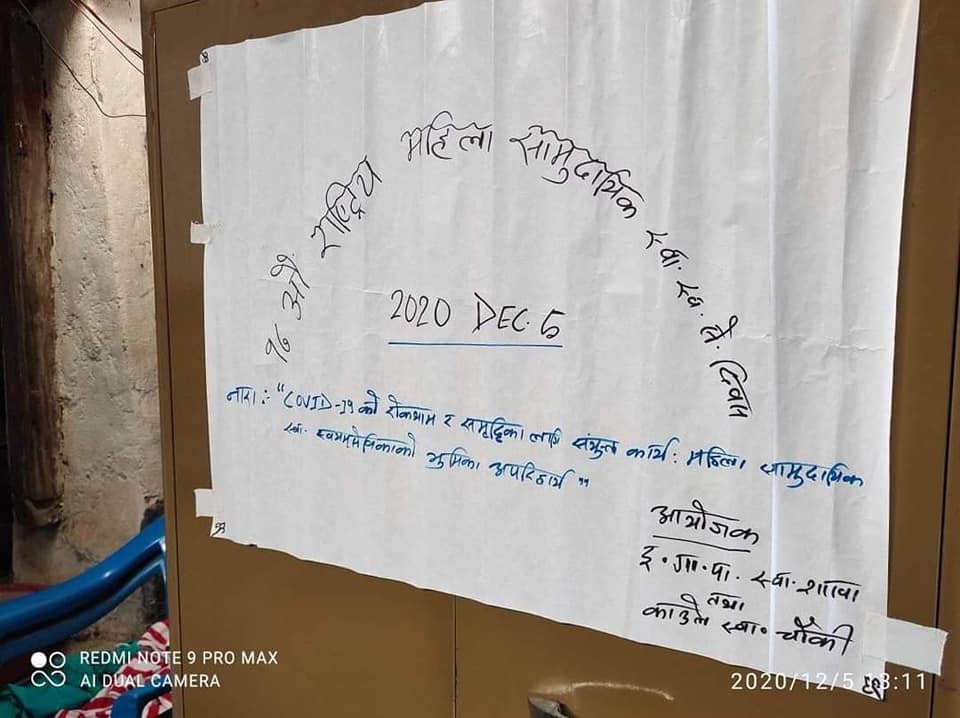 १७ औं राष्ट्रिय महिला सामुदायिक स्वा. स्व. से. दिवस
2020 DEC. 5
नारा :- "COVID-19 को रोकथाम र समृद्धिका लागि संयुक्त कार्य : महिला सामुदायिक
स्वा. स्वयमसेविकाको भुमिका अपरिहार्य "
आयोजक
इ. गा. पा. स्वा. शाखा
तथा
काउले स्वा. चौकी
REDMI NOTE 9 PRO MAX
AI DUAL CAMERA
2020/12/5